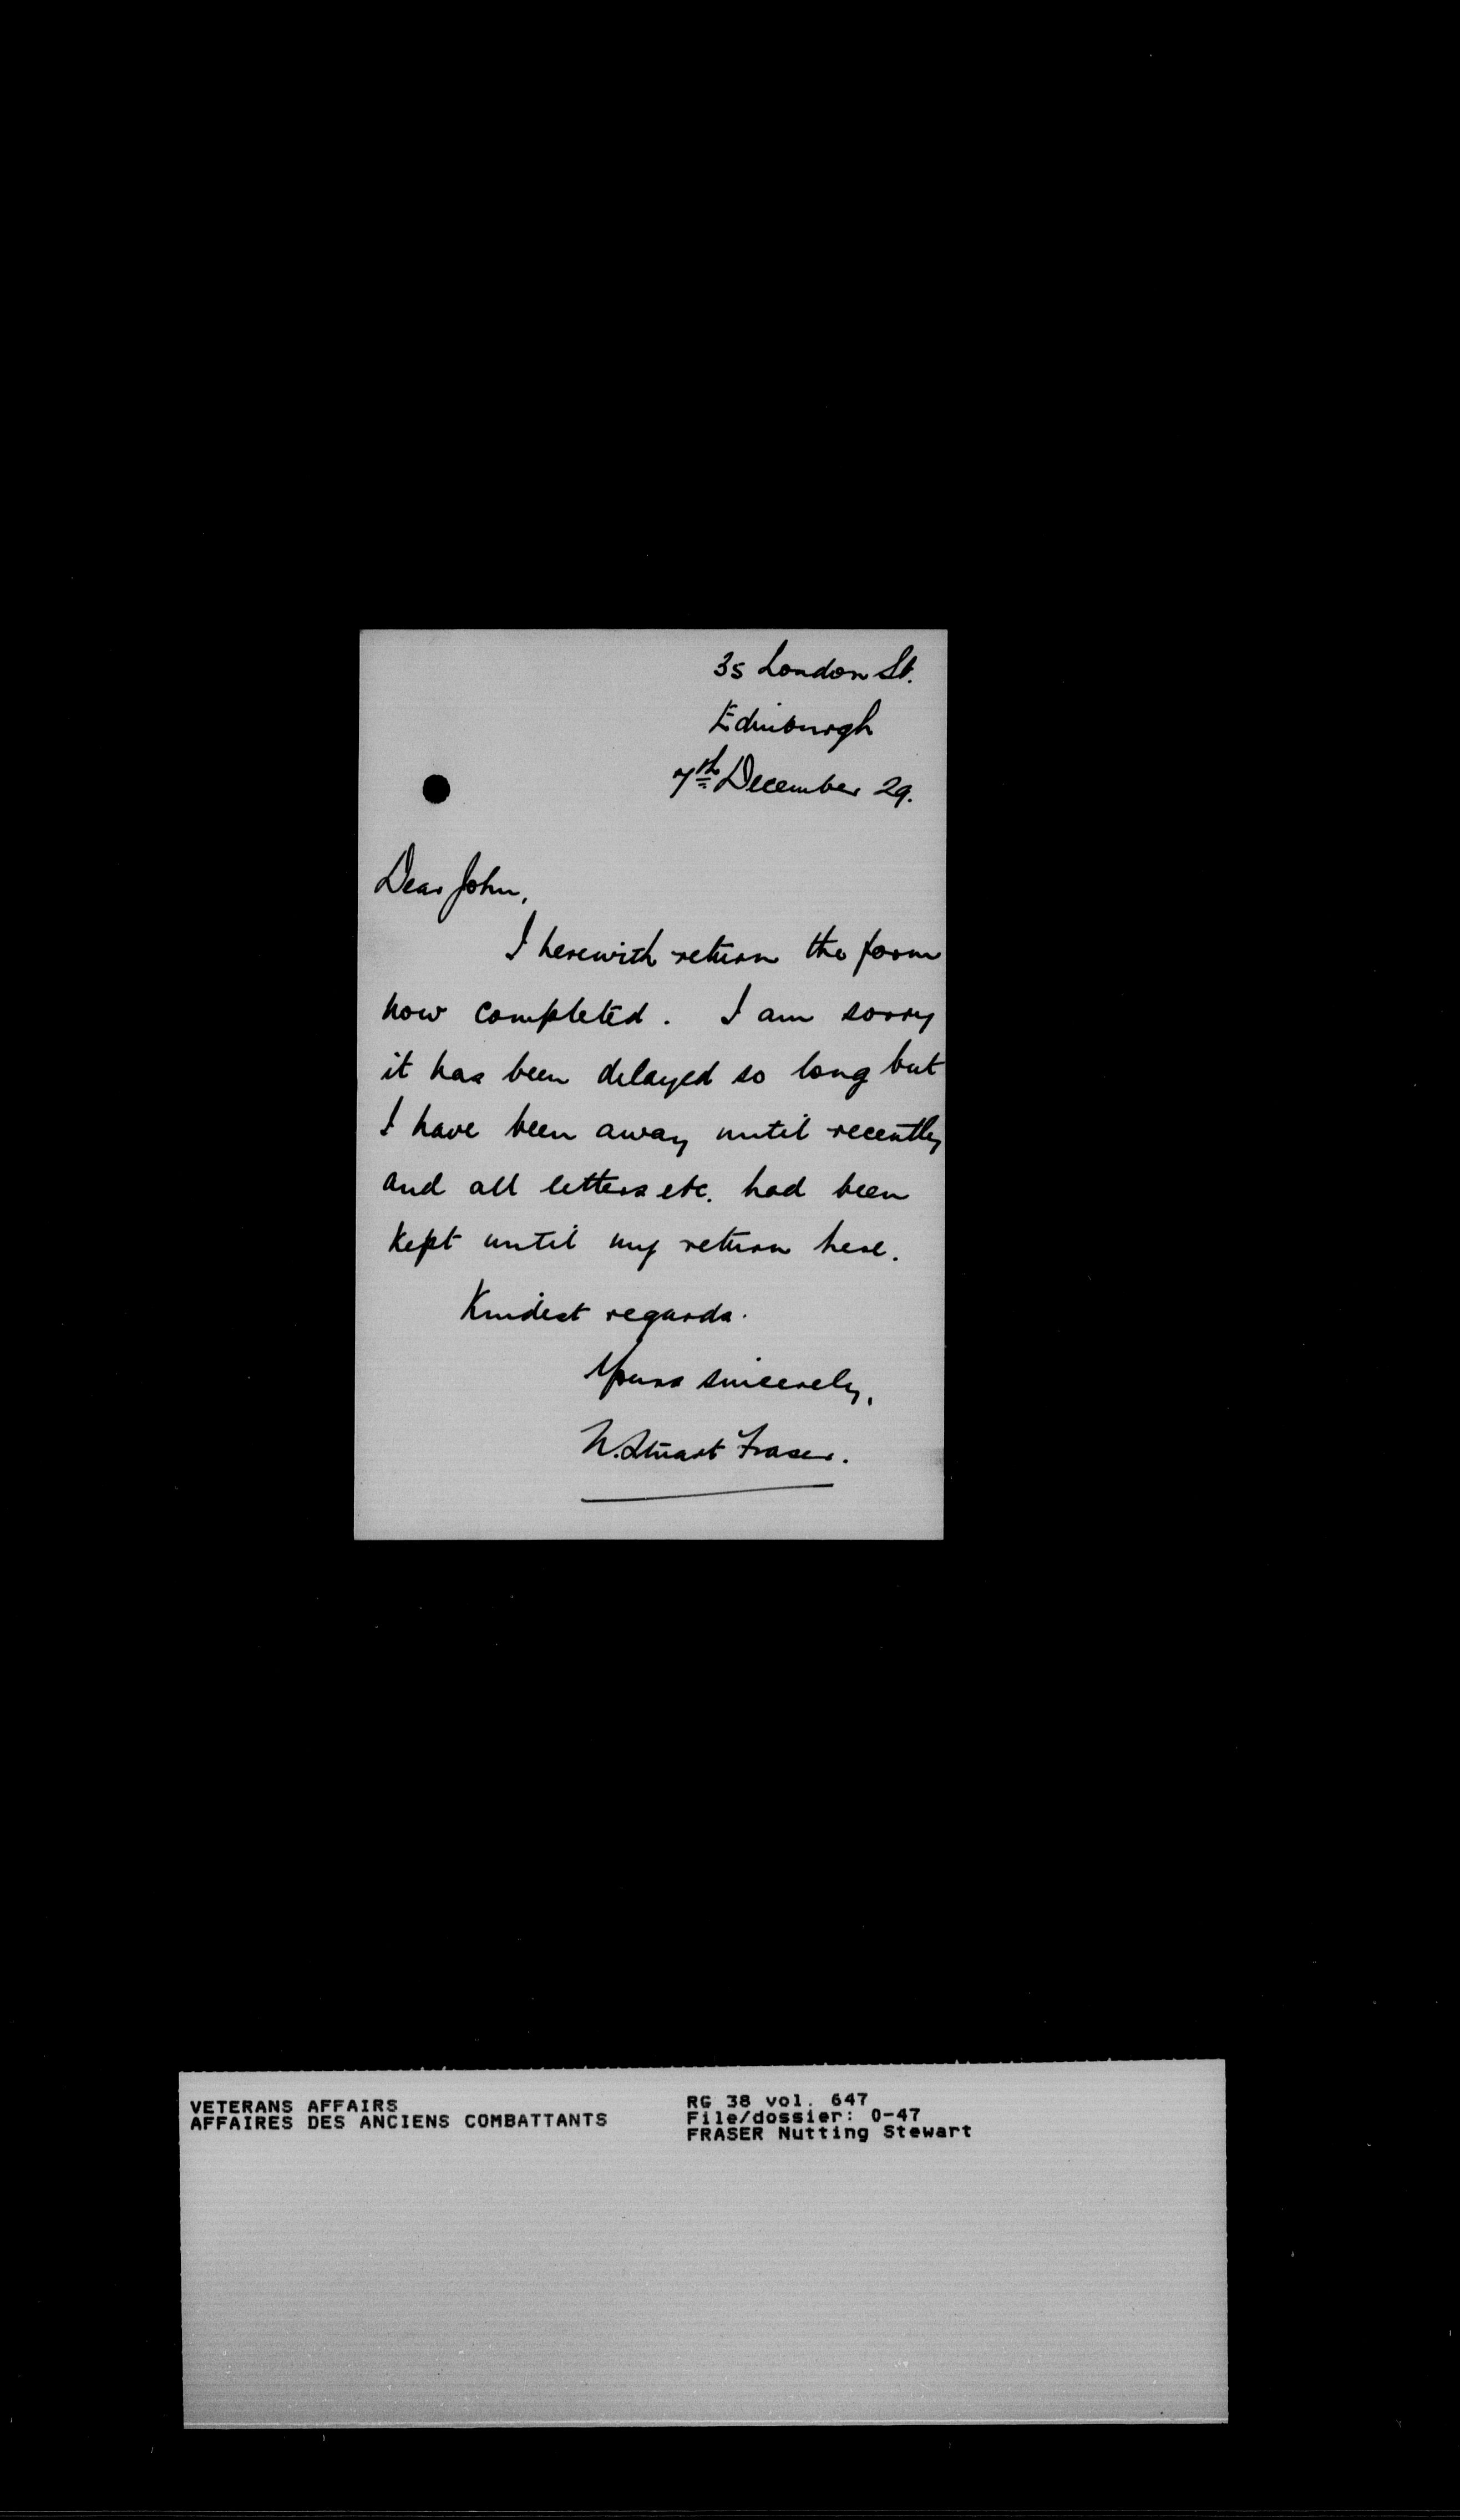 35 London St.
Edinburgh
7th December 29.
Dear John,
I herewith return the form
now completed. I am sorry
it has been delayed so long but
I have been away until recently
and all letters etc. had been
kept until my return here.
Kindest regards.
Yours sincerely,
N. Stuart Fraser.
VETERANS AFFAIRS
AFFAIRES DES ANCIENS COMBATTANTS
RG 38 vol. 647
File/dossier: 0-47
FRASER Nutting Stewart